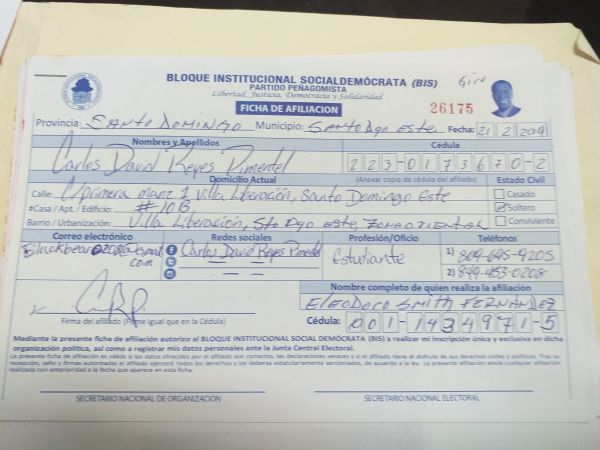 BLOQUE INSTITUCIONAL SOCIALDEMÓCRATA (BIS)
PARTIDO PEÑAGOMISTA
Libertad, Justicia, Democracia y Solidaridad
FICHA DE AFILIACION
26175
Provincia: SANTO DOMINGO Municipio: SANTO Dgo Este Fecha: 21 2 2019
Nombres y Apellidos Cédula
Carlos David Reyes Pimentel 223-0173670-2
Domicilio Actual (Anexar copia de la cédula del afiliado) Estado Civil
Calle: C/primera manz 1 Villa Liberación, Santo Domingo Este Casado
#Casa / Apt. / Edificio: #10B Soltero
Barrio / Urbanización: Villa Liberación, Sto Dgo este, ZONA ORIENTAL Conviviente
Correo electrónico Redes sociales Profesión/Oficio Teléfonos
Carlos David Reyes Pimentel Estudiante 1) 809-695-9205
com 2) 849-453-0208
Nombre completo de quien realiza la afiliación
ELEODORO SMITH FERNANDEZ
Firma del afiliado (Firme igual que en la Cédula) Cédula: 001-1434971-5
Mediante la presente ficha de afiliación autorizo al BLOQUE INSTITUCIONAL SOCIAL DEMÓCRATA (BIS) a realizar mi inscripción única y exclusiva en dicha
organización política, así como a registrar mis datos personales ante la Junta Central Electoral.
La presente ficha de afiliación es válida si los datos ofrecidos por el afiliado son correctos, las declaraciones veraces y si el afiliado tiene el disfrute de sus derechos civiles y políticos. Tras su
recepción, sello y firmas autorizadas el afiliado ejercerá todos los derechos y los deberes estatutariamente sancionados, de acuerdo a la ley. La presente afiliación anula cualquier afiliación
realizada con anterioridad a la fecha que aparece en esta ficha.
SECRETARIO NACIONAL DE ORGANIZACIÓN SECRETARIO NACIONAL ELECTORAL